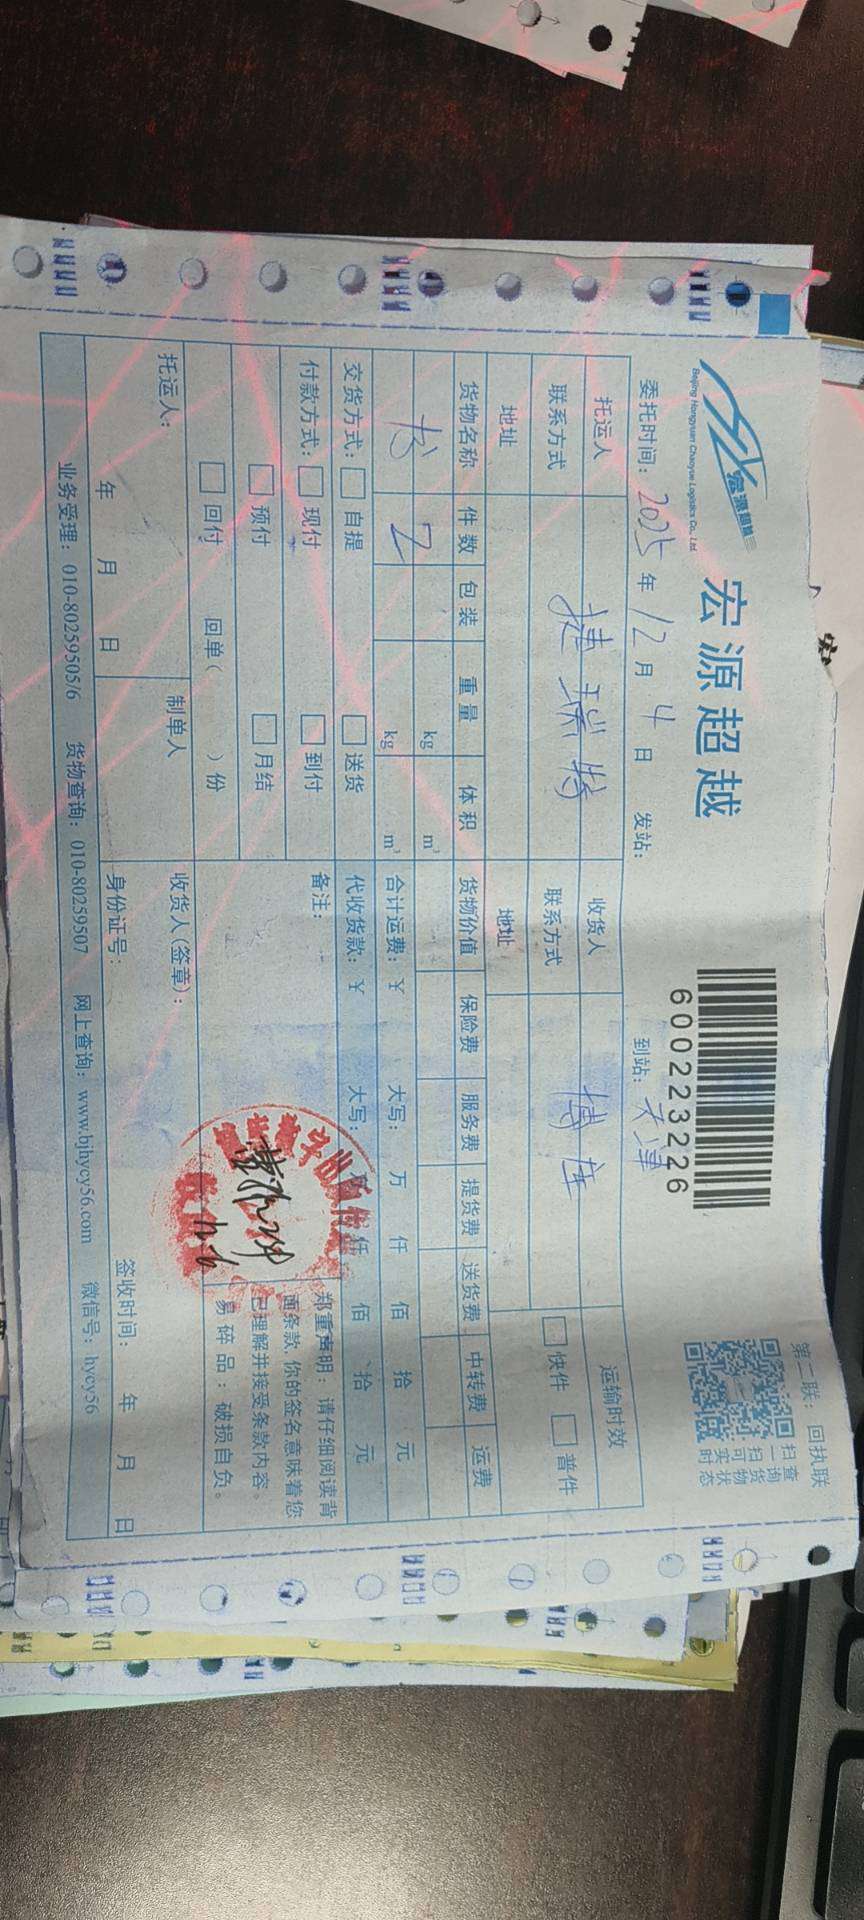 宏源超越
Beijing Hongyuan Chaoyue Logistics Co., Ltd.
宏源超越
600223226
第二联：回执联
扫一扫
查询货物
可实时状态
委托时间：2025年12月4日 发站： 到站：天津
托运人 捷瑞特 收货人 博连 运输时效
联系方式 联系方式 快件 普件
地址 地址
货物名称 件数 包装 重量 体积 货物价值 保险费 服务费 提货费 送货费 中转费 运费
书 2 kg m³
kg m³ 合计运费：￥ 大写： 万 仟 佰 拾 元
交货方式： 自提 送货 代收货款：￥ 大写： 仟 佰 拾 元
付款方式： 现付 到付 备注：
预付 月结
回付 回单（ ）份
郑重声明：请仔细阅读背
面条款，你的签名意味着您
已理解并接受条款内容。
易碎品：破损自负。
托运人： 制单人 收货人(签章)：
年 月 日 身份证号： 签收时间： 年 月 日
业务受理：010-80259505/6 货物查询：010-80259507 网上查询：www.bjhycy56.com 微信号：hycy56